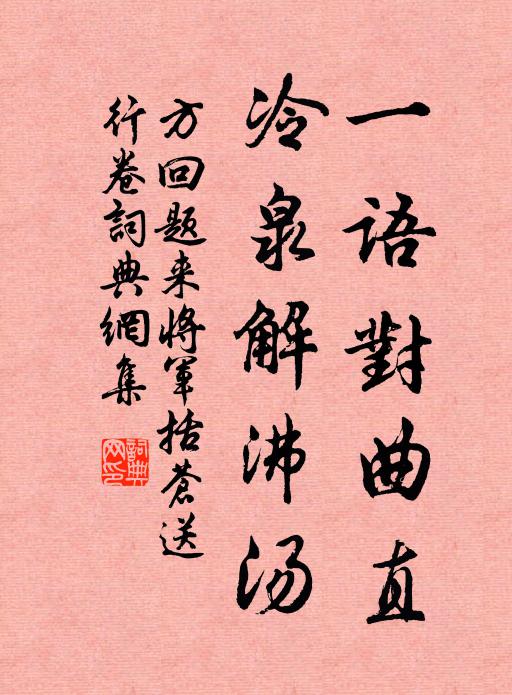 一語對曲直
冷泉解沸汤
方回题来将军括苍送
行卷詞典網集
詞典網印